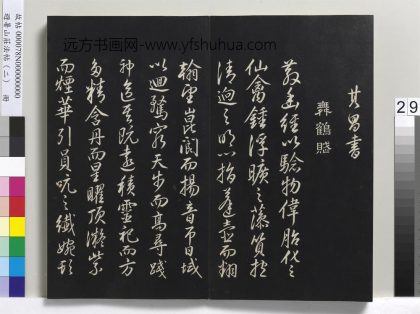 远方书画网-www.yfshuhua.com
其昌書
舞鶴賦
散幽經以驗物偉胎化之
仙禽鍾浮曠之藻質抱
清迥之明心指蓬壺而翻
翰望崑閬而揚音帀日域
以迴騖窮天步而高尋踐
神區其既遠積靈祀而方
多精含丹而星曜頂凝紫
而煙華引員吭之纖婉頓
故帖 000078N000000000
避暑山莊法帖(二) 冊
29